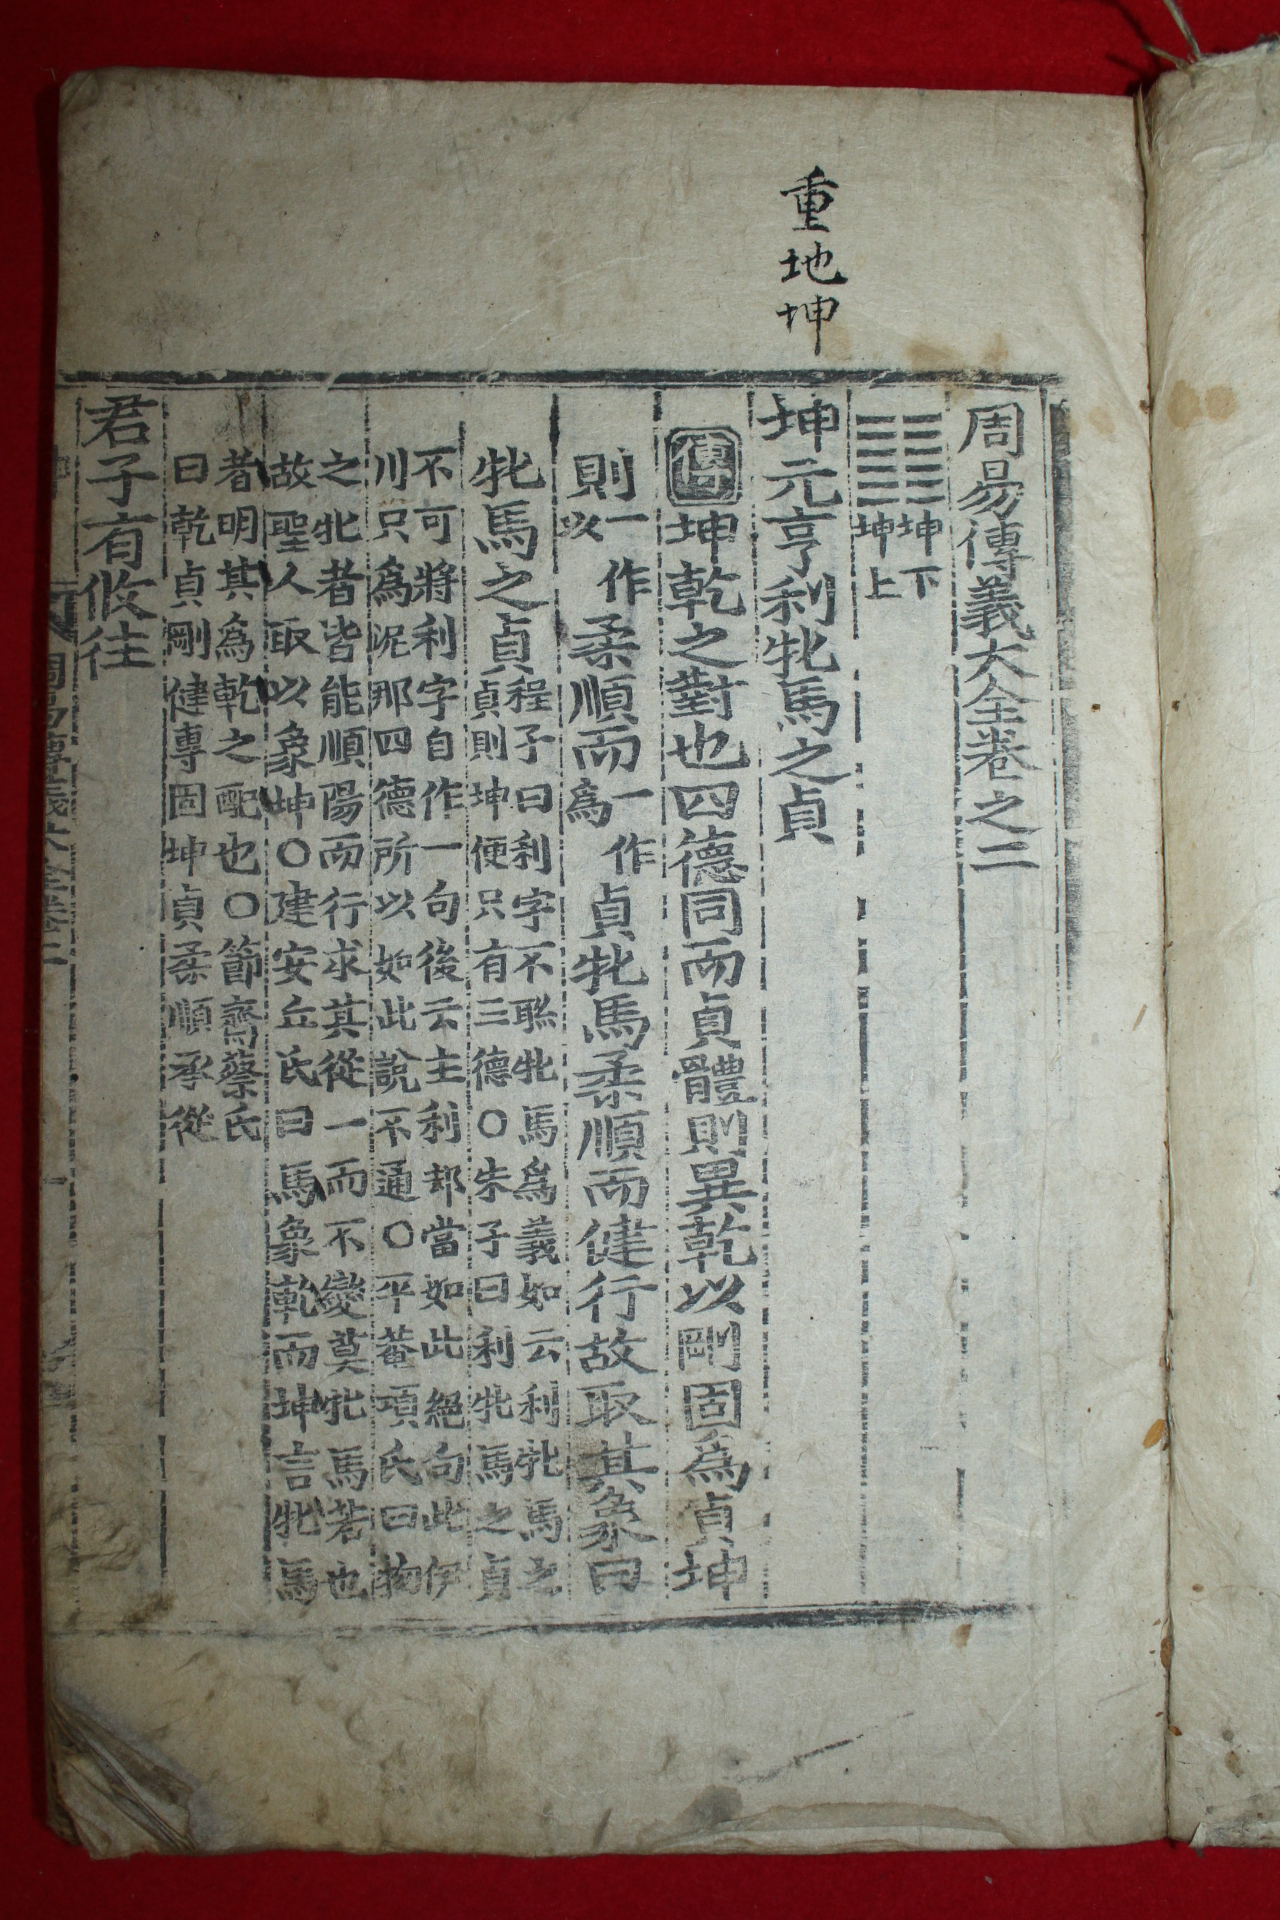 重地坤
周易傳義大全卷之二
坤下
坤上
坤元亨利牝馬之貞
傳坤乾之對也四德同而貞體則異乾以剛固爲貞坤
則一作以柔順而一作爲貞牝馬柔順而健行故取其象曰
牝馬之貞程子曰利字不聯牝馬爲義如云利牝馬之
貞則坤便只有三德○朱子曰利牝馬之貞
不可將利字自作一句後云主利却當如此絕句此伊
川只爲泥那四德所以如此說不通○平菴項氏曰物
之牝者皆能順陽而行求其從一而不變莫牝馬若也
故聖人取以象坤○建安丘氏曰馬象乾而坤言牝馬
者明其爲乾之配也○節齋蔡氏
曰乾貞剛健專固坤貞柔順承從
君子有攸往
周易傳義大全卷二